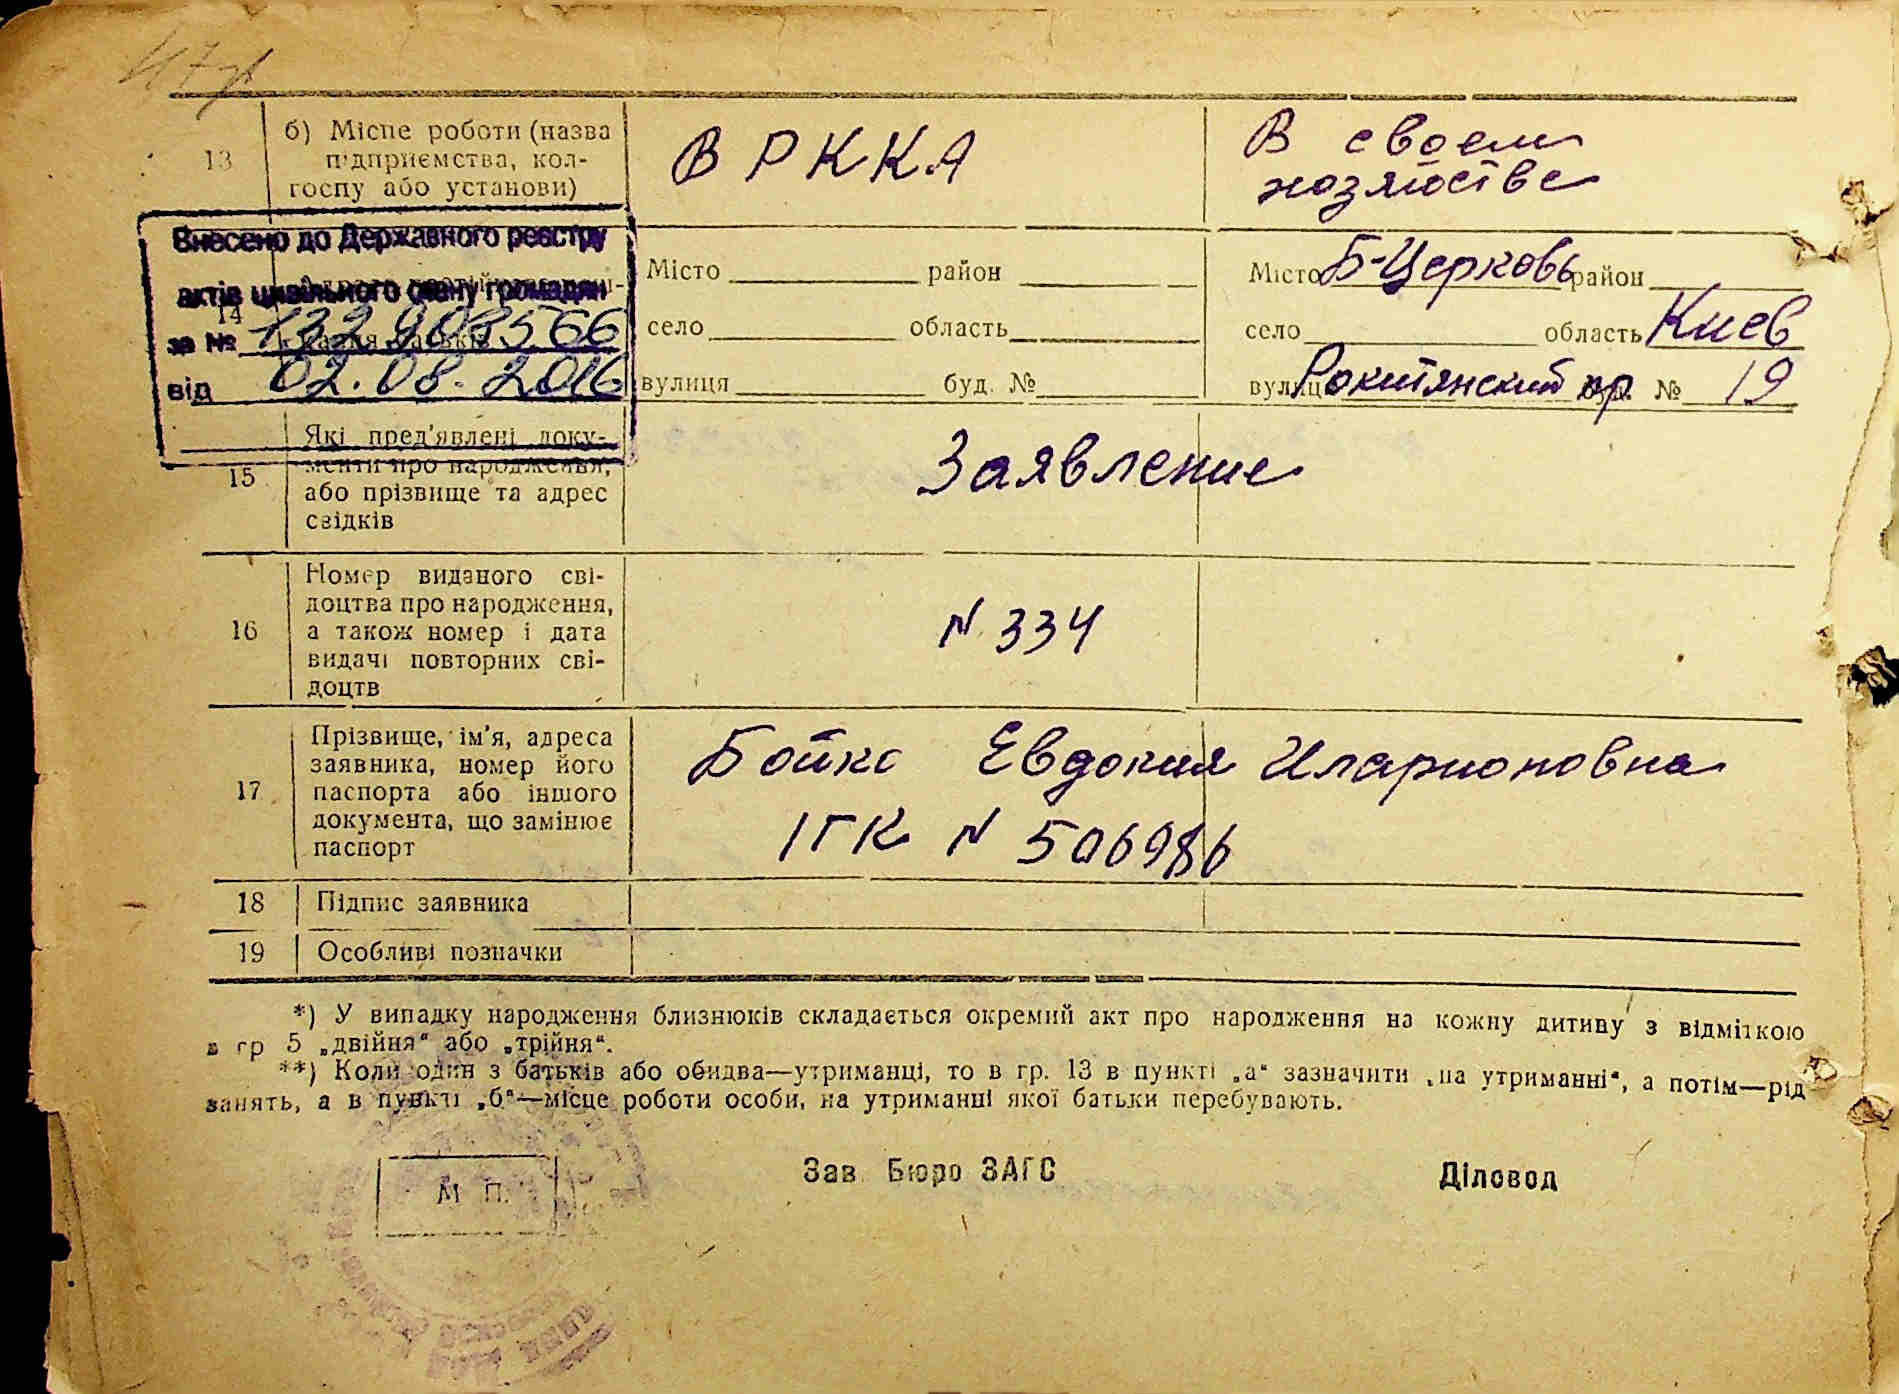 13
б) Місце роботи (назва
підприємства, кол-
госпу або установи)
В РККА
В своем
хозяйстве
Внесено до Державного реєстру
актів цивільного стану громадян
за № 132 903566
від 02.08.2016
14
Місто район
село область
вулиця буд. №
Місто Б-Церковь район
село область Киев
вулиц Рокитянский пр. № 19
15
Які пред'явлені доку-
менти про народження,
або прізвище та адрес
свідків
Заявление
16
Номер виданого сві-
доцтва про народження,
а також номер і дата
видачі повторних сві-
доцтв
N 334
17
Прізвище, ім'я, адреса
заявника, номер його
паспорта або іншого
документа, що замінює
паспорт
Бойко Евдокия Иларионовна
IГК N 506986
18 Підпис заявника
19 Особливі позначки
*) У випадку народження близнюків складається окремий акт про народження на кожну дитину з відміткою
в гр 5 „двійня“ або „трійня“.
**) Коли один з батьків або обидва—утриманці, то в гр. 13 в пункті „а“ зазначити „на утриманні“, а потім—рід
занять, а в пункті „б“—місце роботи особи, на утриманні якої батьки перебувають.
М П.
Зав. Бюро ЗАГС
Діловод